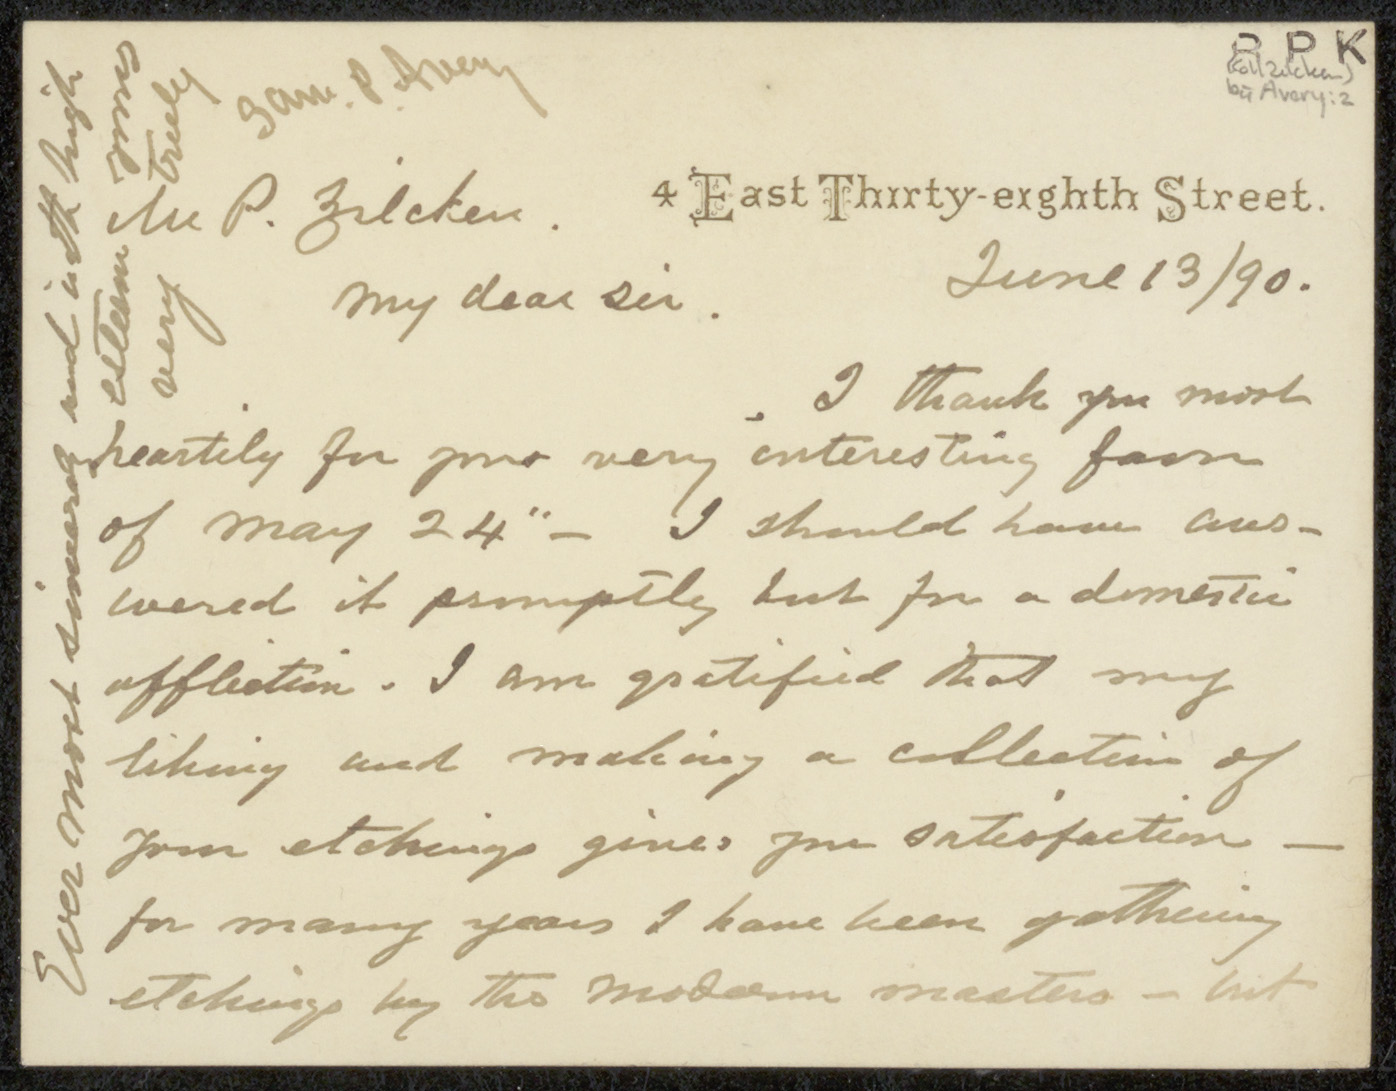 R P K
(coll Zilcken)
bij Avery: 2
4 East Thirty-eighth Street.
June 13/90.
Mr P. Zilcken.
My dear sir.
I thank you most
heartily for your very interesting favor
of May 24" – I should have ans-
wered it promptly but for a domestic
affliction. I am gratified that my
liking and making a collection of
your etchings gives you satisfaction –
for many years I have been gathering
etchings by the modern masters – but
Ever most sincerely and with high
esteem yours
very truly
Sam. P. Avery